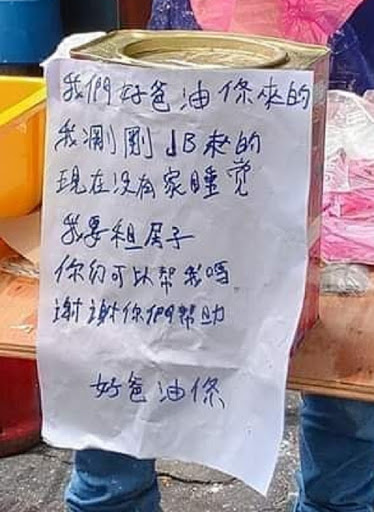 我們好爸油條來的
我剛剛JB來的
現在沒有家睡覚
我要租房子
你们可以帮我嗎
谢谢你們幇助
好爸油條